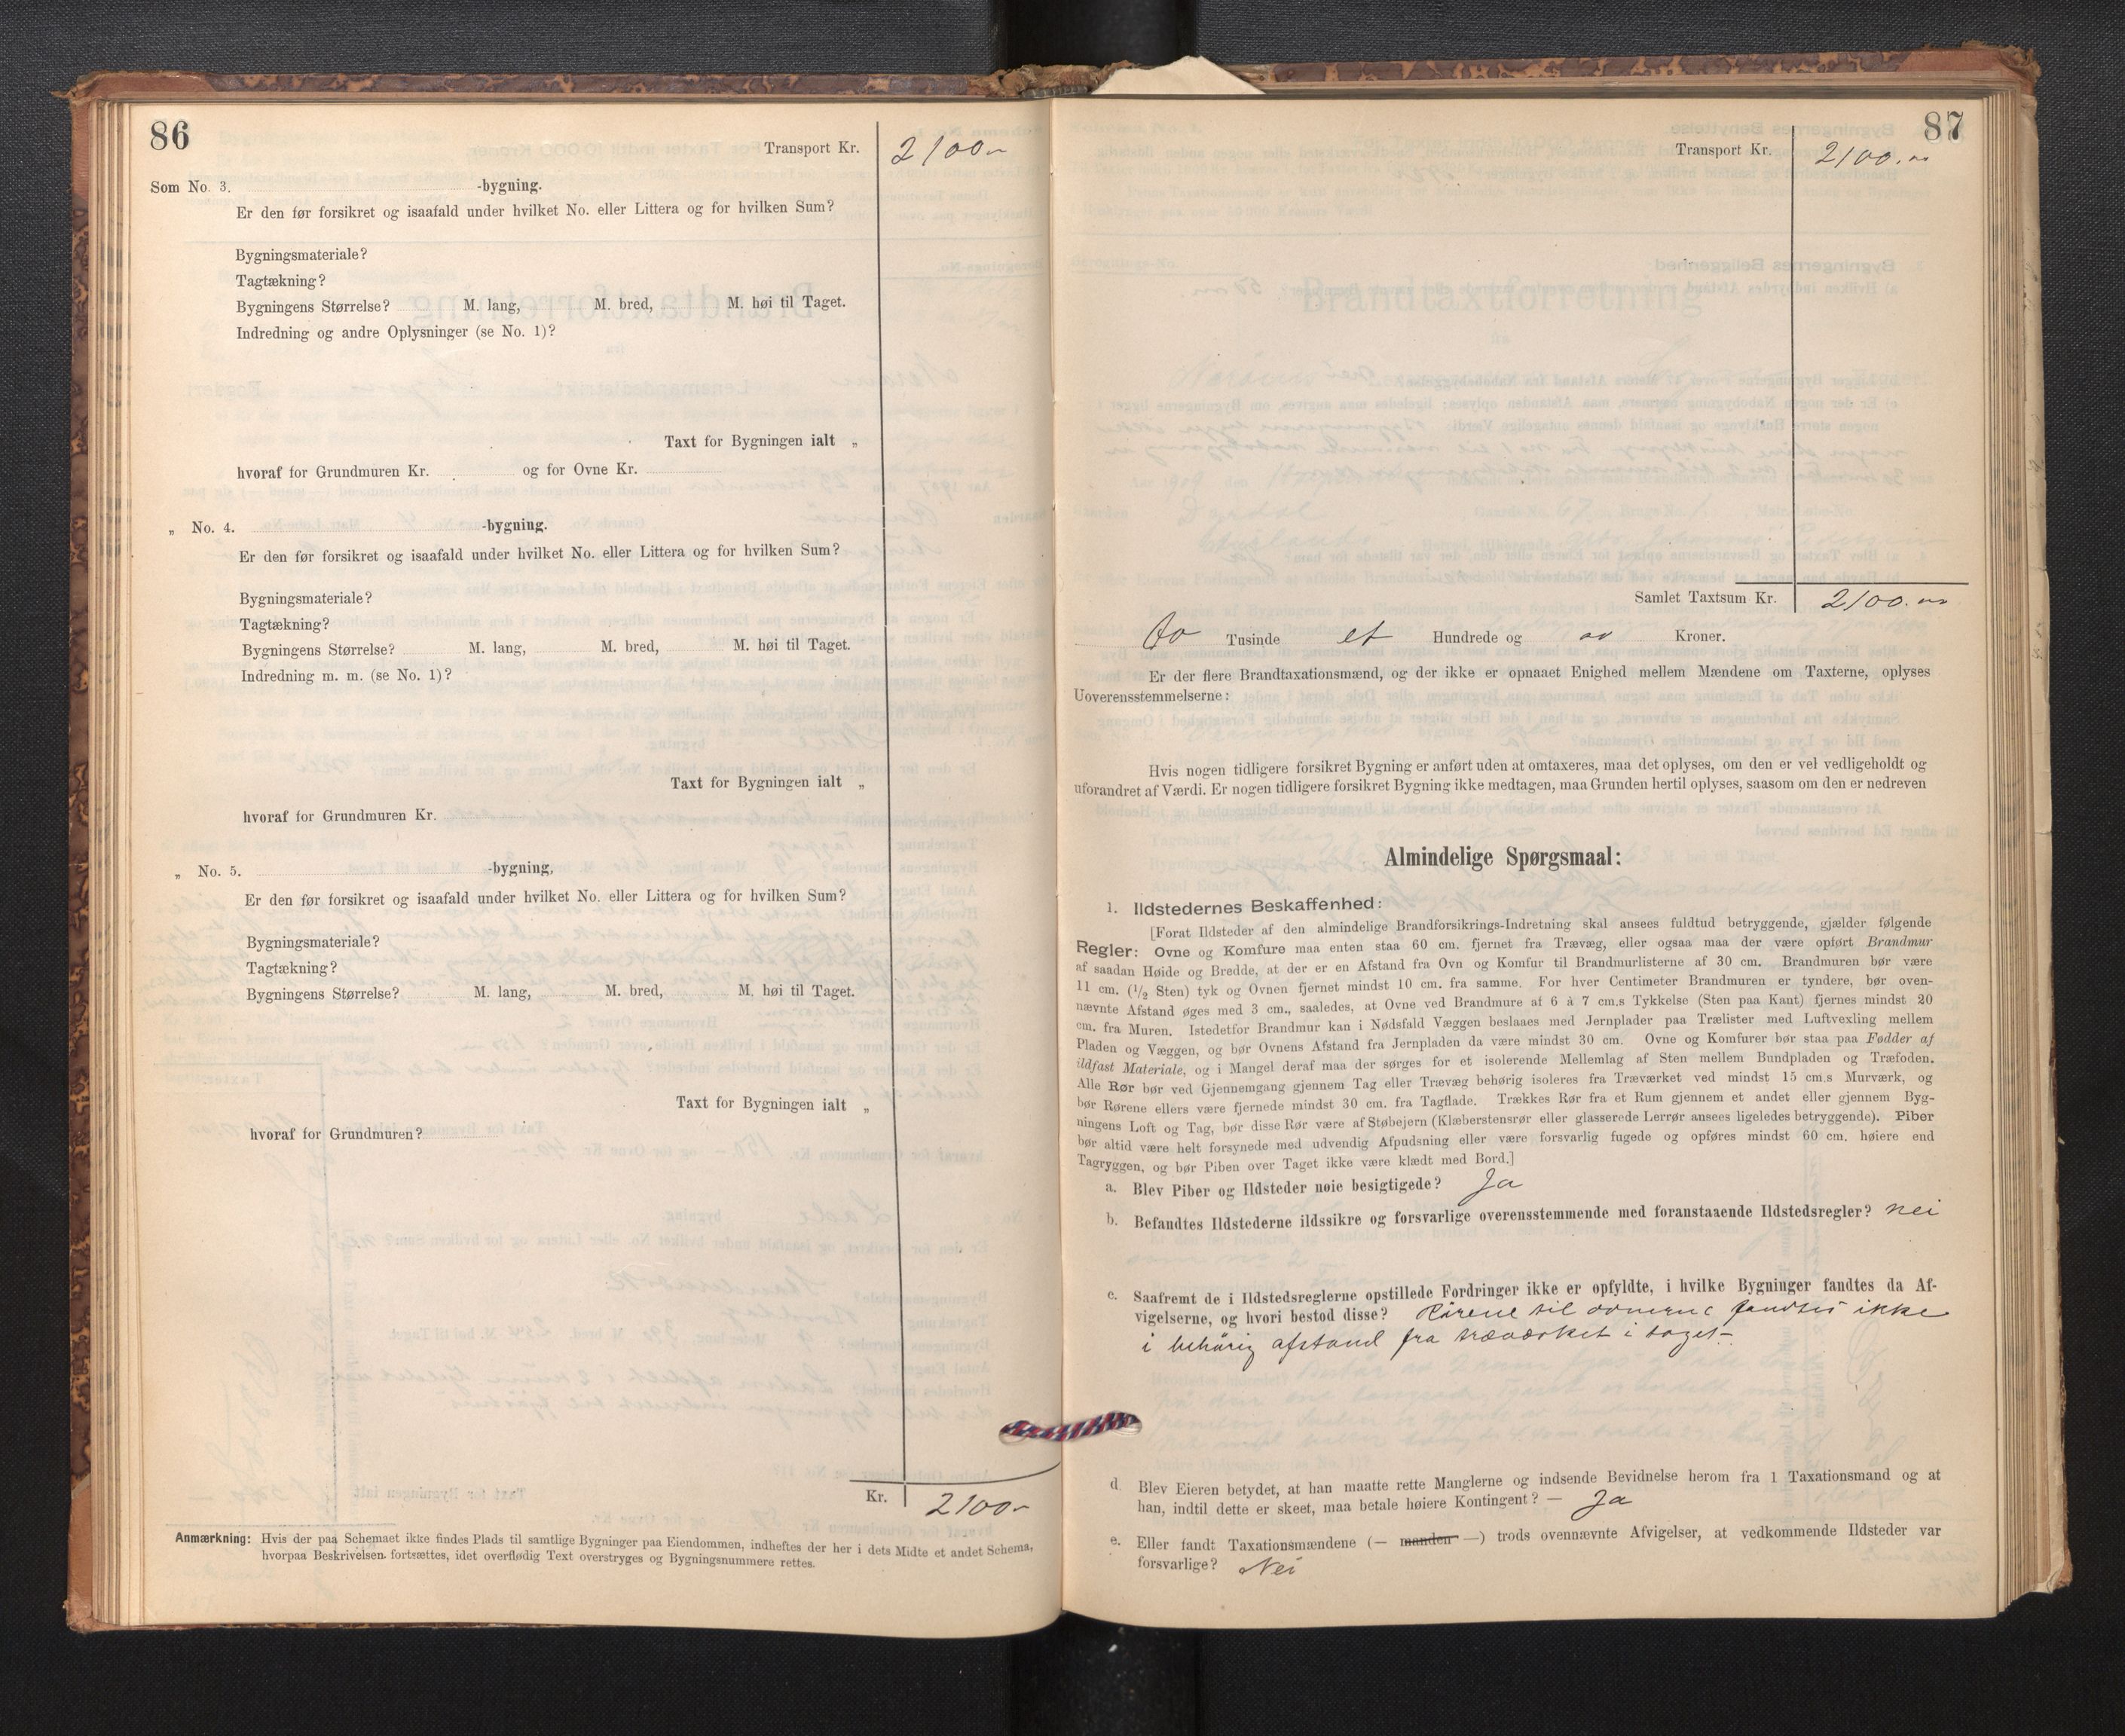 86
Transport Kr. 2100.-
Som No. 3. -bygning.
Er den før forsikret og isaafald under hvilket No. eller Littera og for hvilken Sum?
Bygningsmateriale?
Tagtækning?
Bygningens Størrelse? M. lang, M. bred, M. høi til Taget.
Indredning og andre Oplysninger (se No. 1)?
Taxt for Bygningen ialt „
hvoraf for Grundmuren Kr. og for Ovne Kr.
„ No. 4. -bygning.
Er den før forsikret og isaafald under hvilket No. eller Littera og for hvilken Sum?
Bygningsmateriale?
Tagtækning?
Bygningens Størrelse? M. lang, M. bred, M. høi til Taget.
Indredning m. m. (se No. 1)?
Taxt for Bygningen ialt „
hvoraf for Grundmuren Kr.
„ No. 5. -bygning,
Er den før forsikret og isaafald under hvilket No. eller Littera og for hvilken Sum?
Bygningsmateriale?
Tagtækning?
Bygningens Størrelse? M. lang, M. bred, M. høi til Taget.
Taxt for Bygningen ialt „
hvoraf for Grundmuren?
Kr. 2100.-
Anmærkning: Hvis der paa Schemaet ikke findes Plads til samtlige Bygninger paa Eiendommen, indheftes der her i dets Midte et andet Schema,
hvorpaa Beskrivelsen fortsættes, idet overflødig Text overstryges og Bygningsnummere rettes.
87
Transport Kr. 2100.
Samlet Taxtsum Kr. 2100.
to Tusinde et Hundrede og Kroner.
Er der flere Brandtaxationsmænd, og der ikke er opnaaet Enighed mellem Mændene om Taxterne, oplyses
Uoverensstemmelserne:
Hvis nogen tidligere forsikret Bygning er anført uden at omtaxeres, maa det oplyses, om den er vel vedligeholdt og
uforandret af Værdi. Er nogen tidligere forsikret Bygning ikke medtagen, maa Grunden hertil oplyses, saasom om den er nedreven
Almindelige Spørgsmaal:
1. Ildstedernes Beskaffenhed:
[Forat Ildsteder af den almindelige Brandforsikrings-Indretning skal ansees fuldtud betryggende, gjælder følgende
Regler: Ovne og Komfure maa enten staa 60 cm. fjernet fra Trævæg, eller ogsaa maa der være opført Brandmur
af saadan Høide og Bredde, at der er en Afstand fra Ovn og Komfur til Brandmurlisterne af 30 cm. Brandmuren bør være
11 cm. (1/2 Sten) tyk og Ovnen fjernet mindst 10 cm. fra samme. For hver Centimeter Brandmuren er tyndere, bør oven-
nævnte Afstand øges med 3 cm., saaledes, at Ovne ved Brandmure af 6 à 7 cm.s Tykkelse (Sten paa Kant) fjernes mindst 20
cm. fra Muren. Istedetfor Brandmur kan i Nødsfald Væggen beslaaes med Jernplader paa Trælister med Luftvexling mellem
Pladen og Væggen, og bør Ovnens Afstand fra Jernpladen da være mindst 30 cm. Ovne og Komfurer bør staa paa Fødder af
ildfast Materiale, og i Mangel deraf maa der sørges for et isolerende Mellemlag af Sten mellem Bundpladen og Træfoden.
Alle Rør bør ved Gjennemgang gjennem Tag eller Trævæg behørig isoleres fra Træværket ved mindst 15 cm.s Murværk, og
bør Rørene ellers være fjernede mindst 30 cm. fra Tagflade. Trækkes Rør fra et Rum gjennem et andet eller gjennem Byg-
ningens Loft og Tag, bør disse Rør være af Støbejern (Klæberstensrør eller glasserede Lerrør ansees ligeledes betryggende). Piber
bør altid være helt forsynede med udvendig Afpudsning eller være forsvarlig fugede og opføres mindst 60 cm. høiere end
Tagryggen, og bør Piben over Taget ikke være klædt med Bord.]
a. Blev Piber og Ildsteder nøie besigtigede? Ja
b. Befandtes Ildstederne ildssikre og forsvarlige overensstemmende med foranstaaende Ildstedsregler? nei
c. Saafremt de i Ildstedsreglerne opstillede Fordringer ikke er opfyldte, i hvilke Bygninger fandtes da Af-
vigelserne, og hvori bestod disse? Rørene til ovnene fandtes ikke
i behörig afstand fra træværket i taget.-
d. Blev Eieren betydet, at han maatte rette Manglerne og indsende Bevidnelse herom fra 1 Taxationsmand og at
han, indtil dette er skeet, maa betale høiere Kontingent? — Ja
e. Eller fandt Taxationsmændene (— manden —) trods ovennævnte Afvigelser, at vedkommende Ildsteder var
forsvarlige? Nei